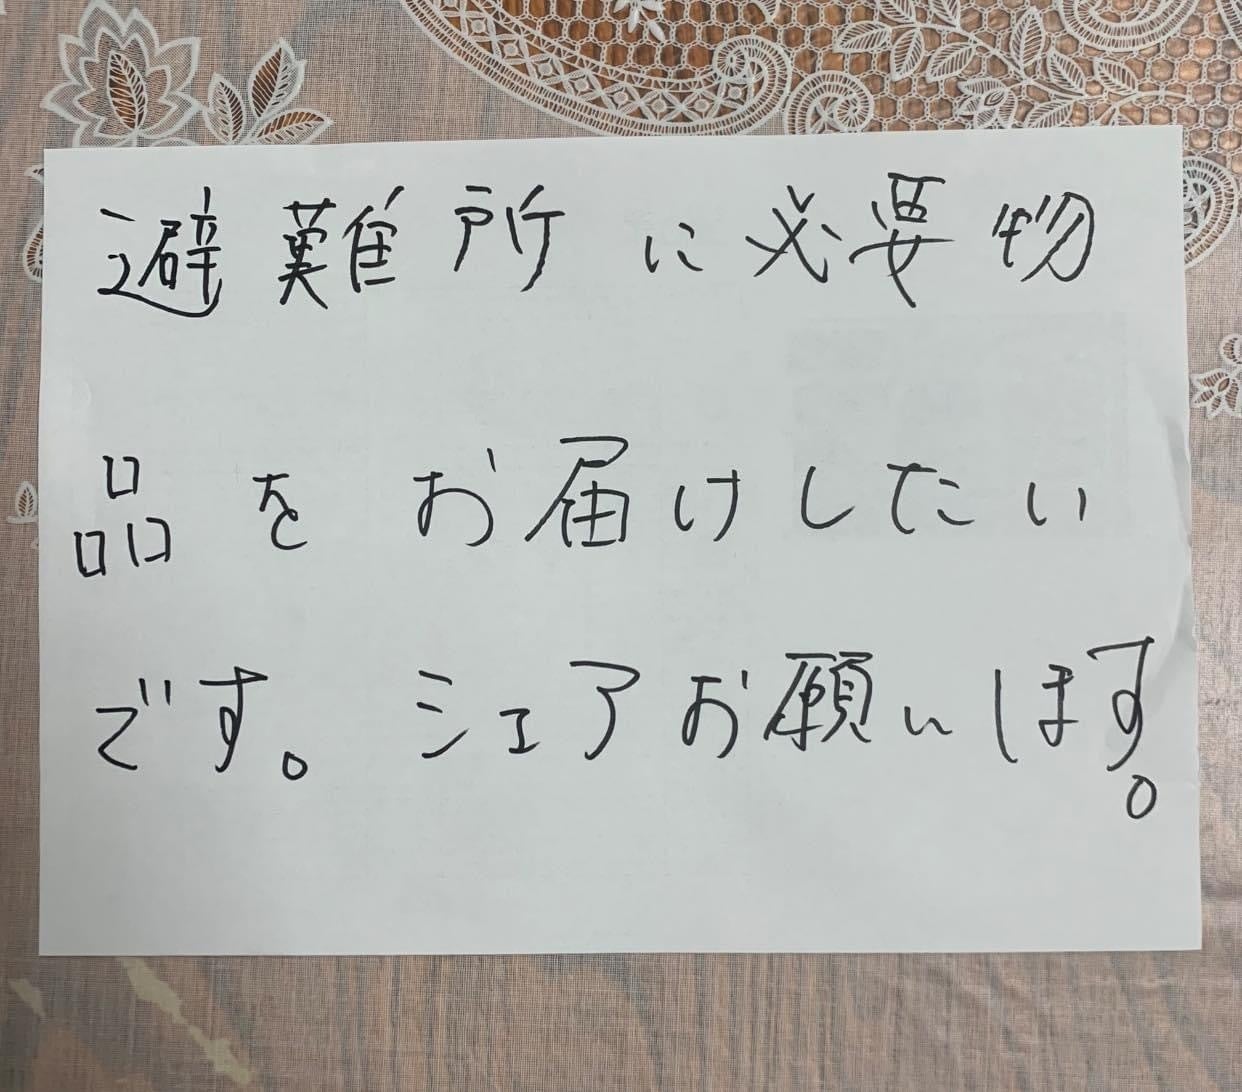 避難所に必要物
品をお届けしたい
です。シェアお願いします。